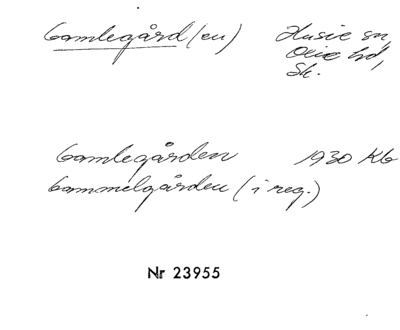 Gamlegård(en) Husie sn,
Oxie hd,
Sk.
Gamlegården 1930 Kb
Gammelgården (i reg.)
Nr 23955